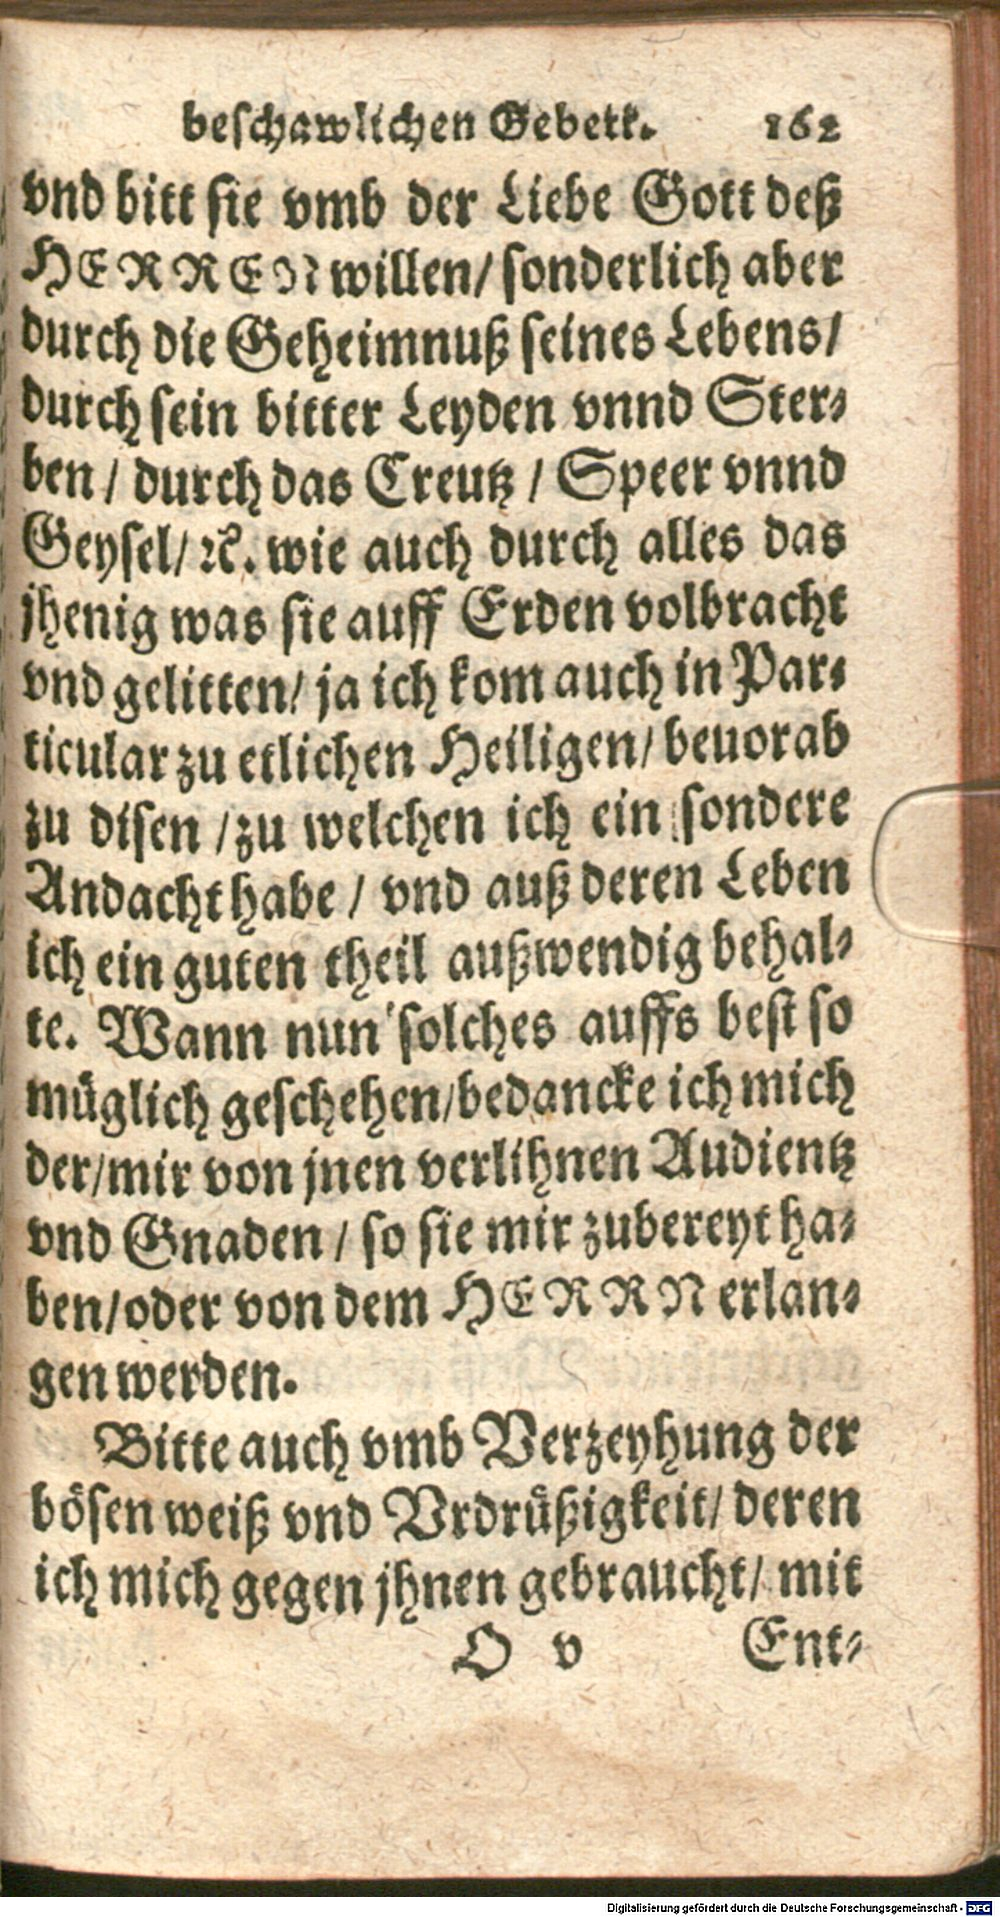 beschawlichen Gebett. 162
vnd bitt sie vmb der Liebe Gott deß
HERREN willen/ sonderlich aber
durch die Geheimnuß seines Lebens/
durch sein bitter Leyden vnnd Ster-
ben / durch das Creutz / Speer vnnd
Geysel/ ꝛc. wie auch durch alles das
jhenig was sie auff Erden volbracht
vnd gelitten/ ja ich kom auch in Par-
ticular zu etlichen Heiligen/ beuorab
zu disen / zu welchen ich ein sondere
Andacht habe / vnd auß deren Leben
ich ein guten theil außwendig behal-
te. Wann nun solches auffs best so
müglich geschehen/bedancke ich mich
der/mir von jnen verlihnen Audientz
vnd Gnaden / so sie mir zubereyt ha-
ben/oder von dem HERRN erlan-
gen werden.
Bitte auch vmb Verzeyhung der
bösen weiß vnd Vrdrüßigkeit/ deren
ich mich gegen jhnen gebraucht/ mit
O v Ent-
Digitalisierung gefördert durch die Deutsche Forschungsgemeinschaft - DFG